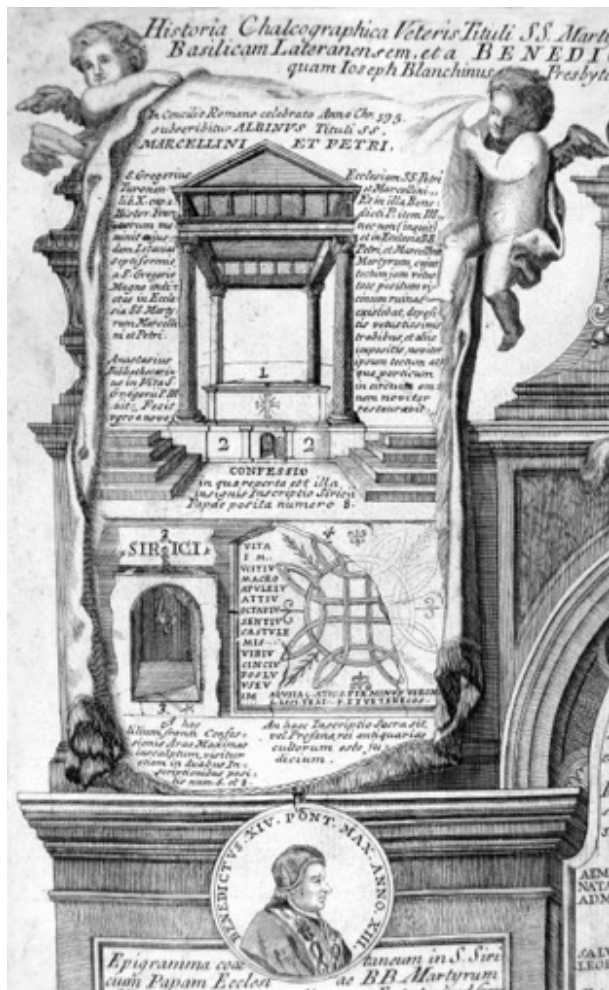 Historia Chalcographica Veteris Tituli SS. Marty
Basilicam Lateranensem, et a BENEDIC
quam Ioseph Blanchinus Presbyte
In Concilio Romano celebrato Anno Chr. 595.
subscribitur ALBINVS Tituli SS.
MARCELLINI ET PETRI.
S. Gregorius
Turonen
lib. X. cap. 1
Histor. Fran
corum me
minit cujus
dam Letaniae
septiformis
a S. Gregorio
Magno indi
ctae in Eccle
sia SS. Marty
rum Marcelli
ni et Petri.
Anastasius
Bibliothecari
us in Vita S.
Gregorii P. III
ait, Fecit
vero a novo
Ecclesiam SS. Petri
et Marcellini.
Et in illa Bene
dicti P. item III.
nec non (inquit)
et in Ecclesia BB.
Petri, et Marcellini
Martyrum, cujus
tectum jam vetus
tate positum vi
cinum ruinae
existebat, deposi
tis vetustissimis
trabibus, et aliis
impositis, noviter
ipsum tectum at
que porticum
in circuitu om
nem noviter
restauravit.
1
2 2
CONFESSIO
in qua reperta est illa
insignis Inscriptio Siricii
Papae posita numero 8.
2
SIRICI
3
4
VITA
IM
VCITIV
MACRO
APVLEIV
ATTIV
OCTAVIV
SENTIV
CASTVLE
MIS
VIBIV
CINCIV
POSLV
VSEV
IM
A hoc
lilium fronti Confes
sionis Arae Maximae
insculptum, visitur
etiam in duabus In
scriptionibus posi
tis num. 6. et 8.
An haec Inscriptio Sacra sit,
vel Profana, rei antiquariae
cultorum esto ju
dicium.
BENEDICTVS XIV. PONT. MAX. ANNO XIII.
Epigramma coae taneum in S. Siri
cium Papam Ecclesi ae BB. Martyrum
AEM
NATA
ADM
SALV
LEOP